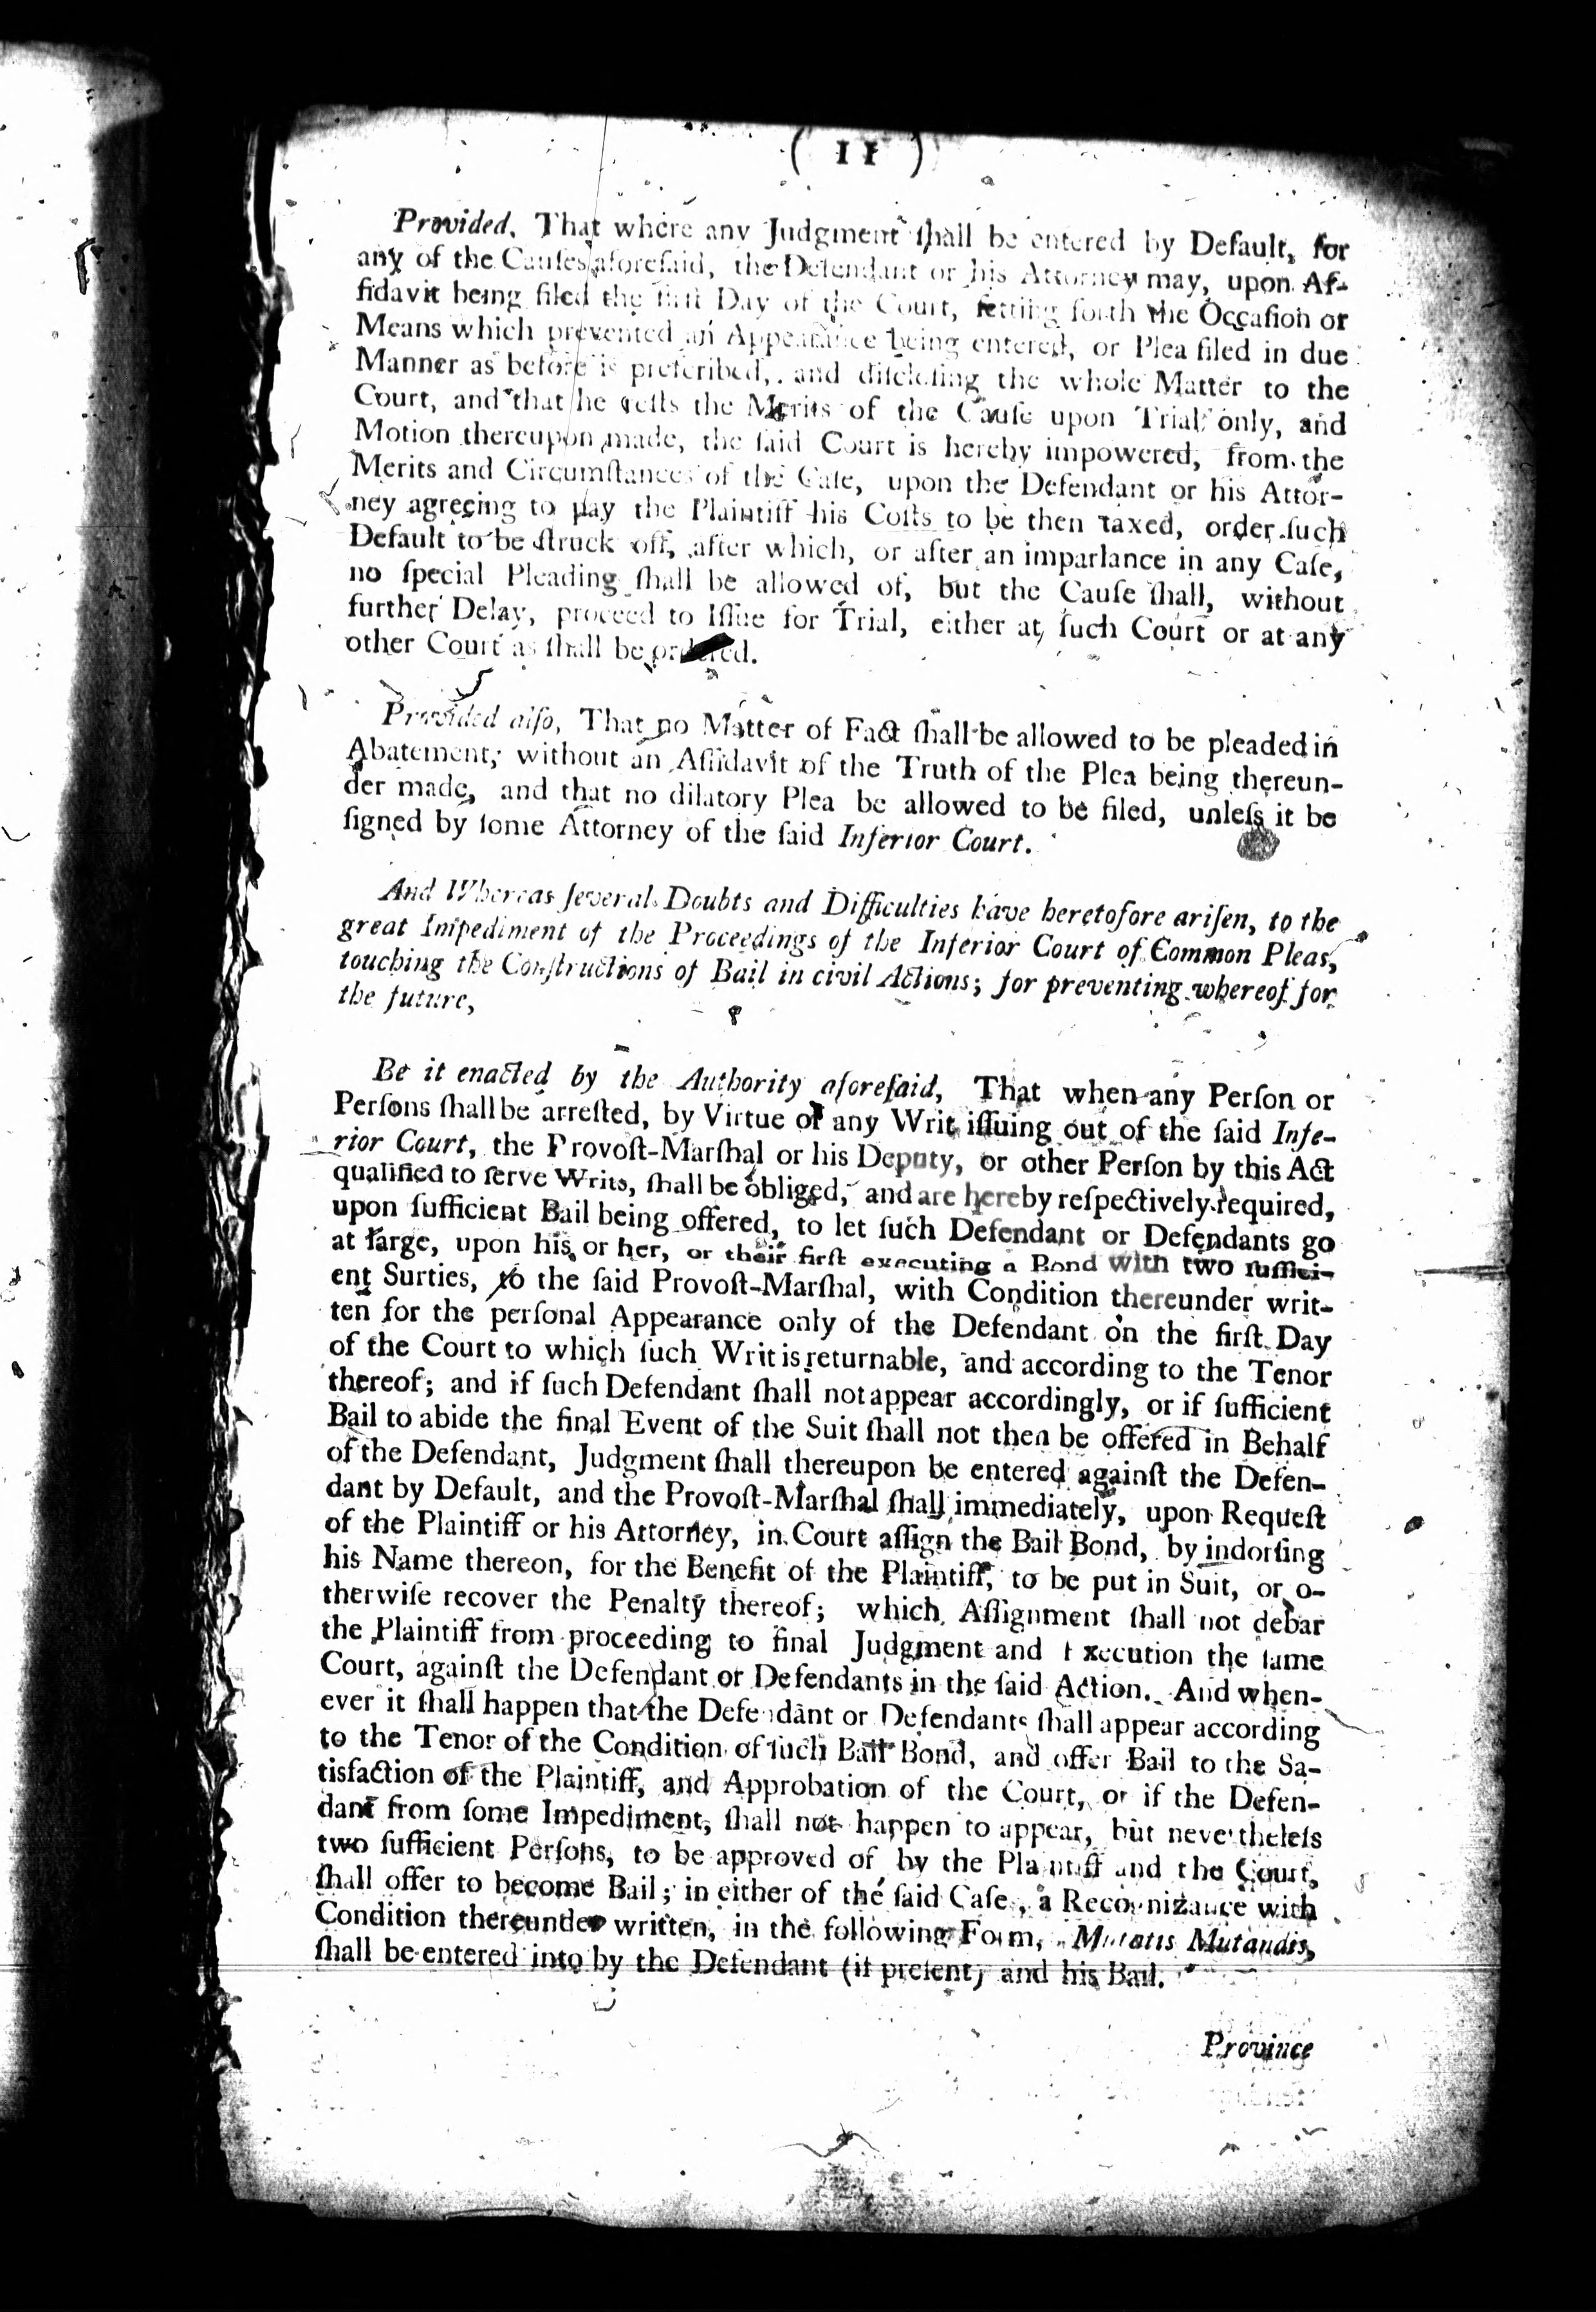 ( 11 )
Provided, That where any Judgment ſhall be entered by Default, for
any of the Cauſes aforeſaid, the Defendant or his Attorney may, upon Af-
fidavit being filed the firſt Day of the Court, ſetting forth the Occaſion or
Means which prevented an Appearance being entered, or Plea filed in due
Manner as before is preſcribed, and diſcloſing the whole Matter to the
Court, and that he reſts the Merits of the Cauſe upon Trial only, and
Motion thereupon made, the ſaid Court is hereby impowered, from the
Merits and Circumſtances of the Caſe, upon the Defendant or his Attor-
ney agreeing to pay the Plaintiff his Coſts to be then taxed, order ſuch
Default to be ſtruck off, after which, or after an imparlance in any Caſe,
no ſpecial Pleading ſhall be allowed of, but the Cauſe ſhall, without
further Delay, proceed to Iſſue for Trial, either at ſuch Court or at any
other Court as ſhall be ordered.
Provided alſo, That no Matter of Fact ſhall be allowed to be pleaded in
Abatement, without an Affidavit of the Truth of the Plea being thereun-
der made, and that no dilatory Plea be allowed to be filed, unleſs it be
ſigned by ſome Attorney of the ſaid Inferior Court.
And Whereas ſeveral Doubts and Difficulties have heretofore ariſen, to the
great Impediment of the Proceedings of the Inferior Court of Common Pleas,
touching the Conſtructions of Bail in civil Actions; for preventing whereof for
the future,
Be it enacted by the Authority aforeſaid, That when any Perſon or
Perſons ſhall be arreſted, by Virtue of any Writ iſſuing out of the ſaid Infe-
rior Court, the Provoſt-Marſhal or his Deputy, or other Perſon by this Act
qualified to ſerve Writs, ſhall be obliged, and are hereby reſpectively required,
upon ſufficient Bail being offered, to let ſuch Defendant or Defendants go
at large, upon his or her, or their firſt executing a Bond with two ſuffici-
ent Surties, to the ſaid Provoſt-Marſhal, with Condition thereunder writ-
ten for the perſonal Appearance only of the Defendant on the firſt Day
of the Court to which ſuch Writ is returnable, and according to the Tenor
thereof; and if ſuch Defendant ſhall not appear accordingly, or if ſufficient
Bail to abide the final Event of the Suit ſhall not then be offered in Behalf
of the Defendant, Judgment ſhall thereupon be entered againſt the Defen-
dant by Default, and the Provoſt-Marſhal ſhall immediately, upon Requeſt
of the Plaintiff or his Attorney, in Court aſſign the Bail Bond, by indorſing
his Name thereon, for the Benefit of the Plaintiff, to be put in Suit, or o-
therwiſe recover the Penalty thereof; which Aſſignment ſhall not debar
the Plaintiff from proceeding to final Judgment and Execution the ſame
Court, againſt the Defendant or Defendants in the ſaid Action. And when-
ever it ſhall happen that the Defendant or Defendants ſhall appear according
to the Tenor of the Condition of ſuch Bail Bond, and offer Bail to the Sa-
tisfaction of the Plaintiff, and Approbation of the Court, or if the Defen-
dant from ſome Impediment, ſhall not happen to appear, but nevertheleſs
two ſufficient Perſons, to be approved of by the Plaintiff and the Court,
ſhall offer to become Bail; in either of the ſaid Caſes, a Recognizance with
Condition thereunder written, in the following Form, Mutatis Mutandis,
ſhall be entered into by the Defendant (if preſent) and his Bail.
Province